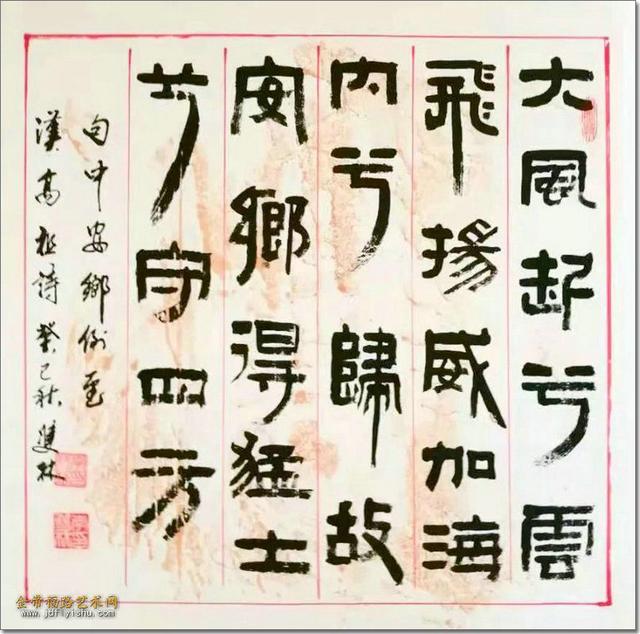 大風起兮雲
飛揚威加海
内兮歸故
安鄉得猛士
兮守四方
句中安鄉倒置
漢高祖詩 癸巳秋 雙林
金帝福路艺术网
www.jdflyishu.com